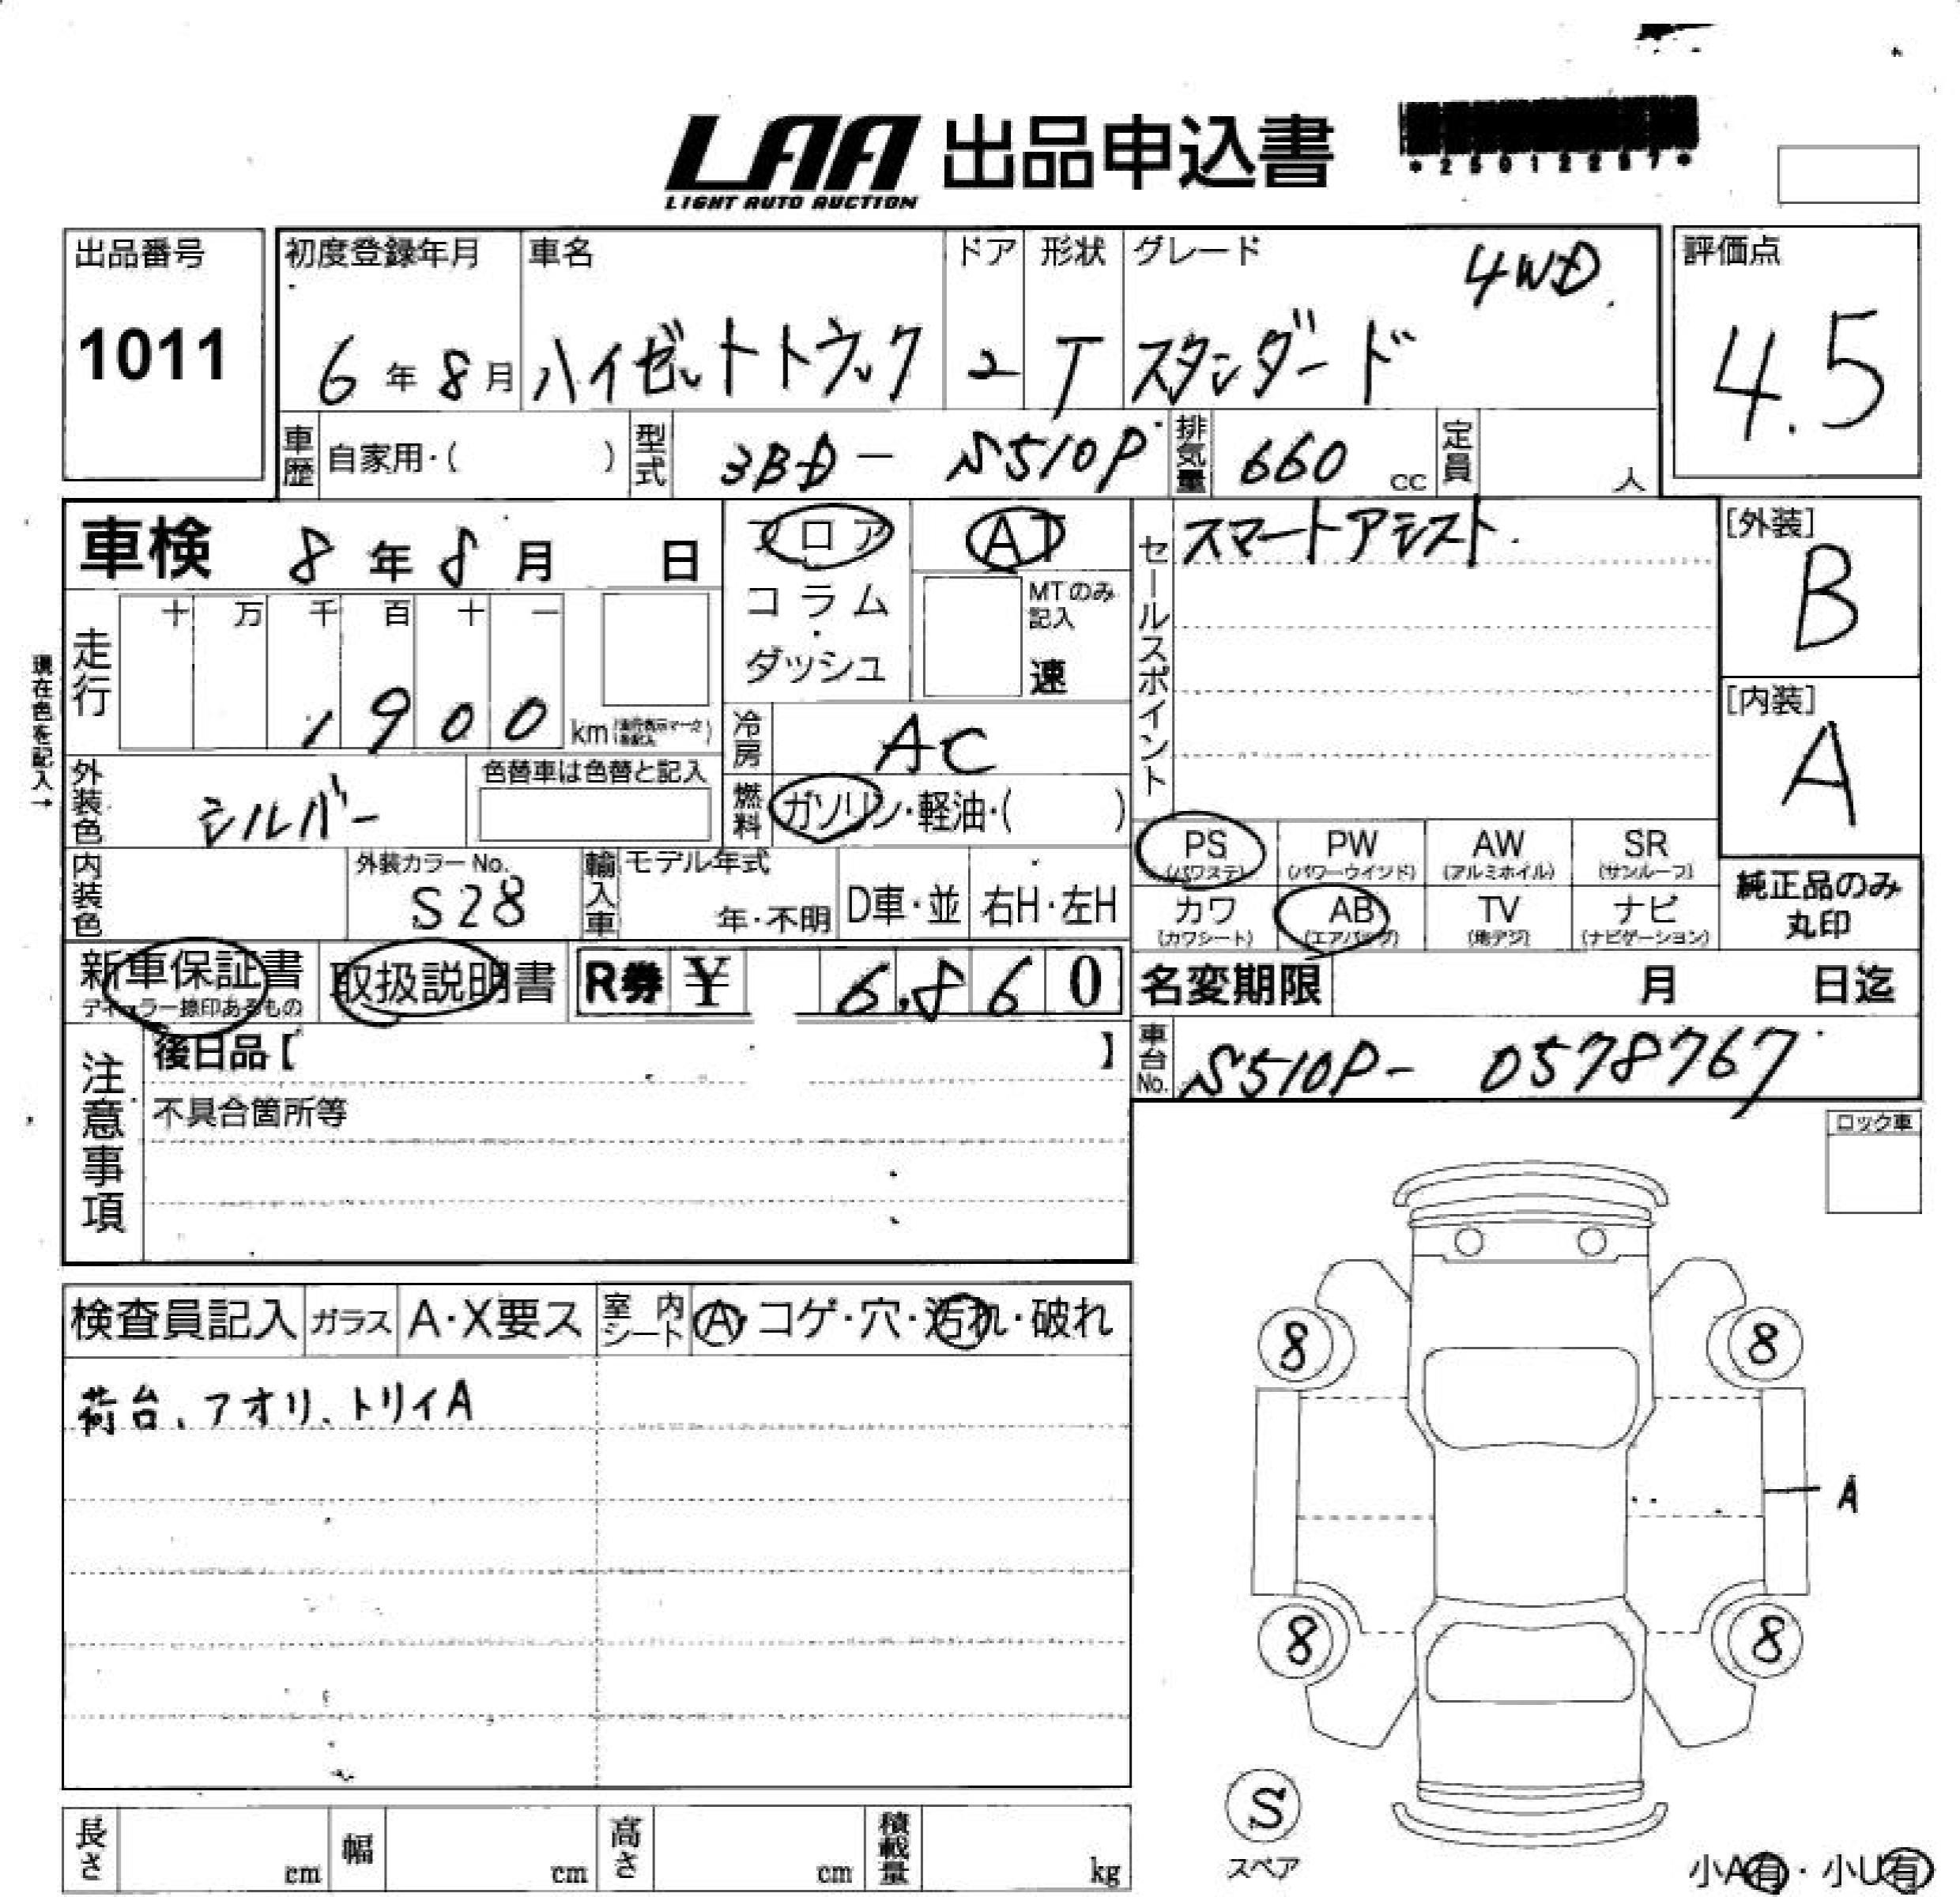 LAA 出品申込書
LIGHT AUTO AUCTION
*25012257*
出品番号
1011
初度登録年月
6年8月
車名
ハイゼットトラック
ドア
2
形状
T
グレード
4WD
スタンダード
評価点
4.5
車歴 自家用・( )
型式 3BD-S510P
排気量 660 cc
定員 人
車検 8年8月 日
フロア
コラム
・
ダッシュ
AT
MTのみ
記入
速
セールスポイント
スマートアシスト
[外装]
B
[内装]
A
現在色を記入→
走行
十 万 千 百 十 一
1900 km
冷房 AC
外装色 シルバー
色替車は色替と記入
燃料 ガソリン・軽油・( )
内装色
外装カラーNo.
S28
輸入車
モデル年式
年・不明
D車・並
右H・左H
PS
(パワステ)
PW
(パワーウインド)
AW
(アルミホイル)
SR
(サンルーフ)
カワ
(カワシート)
AB
(エアバッグ)
TV
(地デジ)
ナビ
(ナビゲーション)
純正品のみ
丸印
新車保証書
ディーラー捺印あるもの
取扱説明書
R券 ¥ 6,860
名変期限 月 日迄
車台No. S510P-0578767
注意事項
後日品【 】
不具合箇所等
ロック車
検査員記入
ガラス
A・X要ス
室内シート
A・コゲ・穴・汚れ・破れ
荷台、アオリ、トリイA
8
8
A
8
8
S
スペア
小A有・小U有
長さ cm
幅 cm
高さ cm
積載量 kg